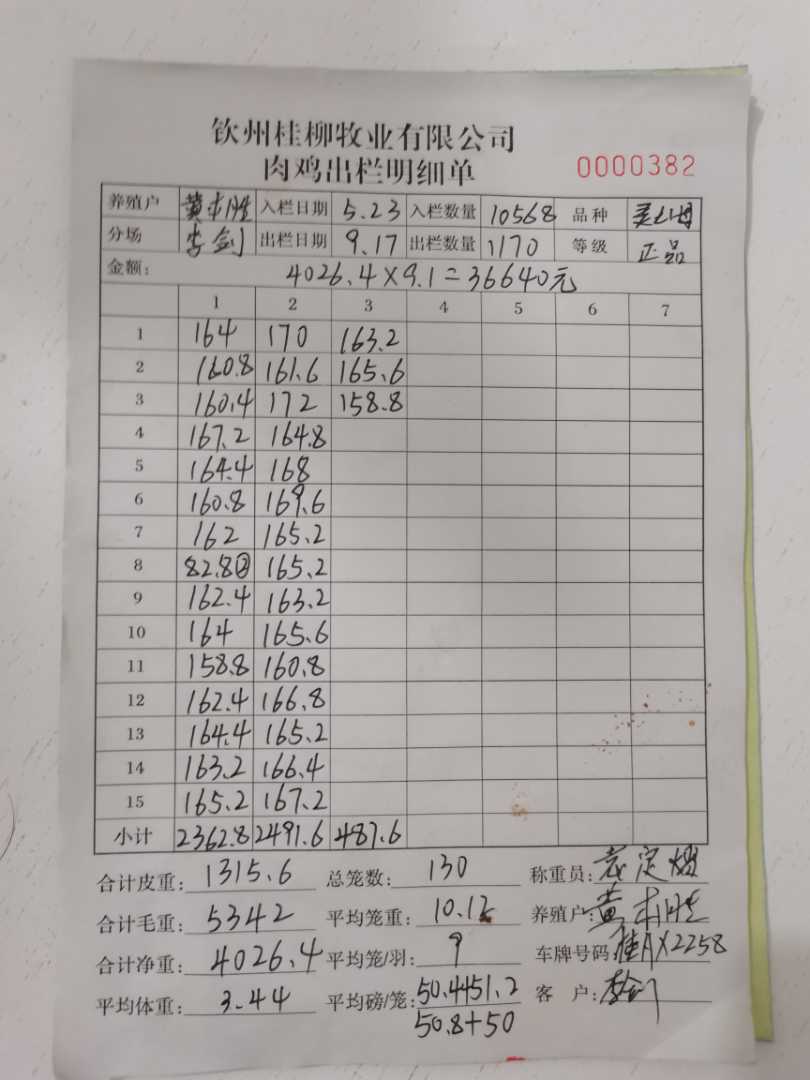 钦州桂柳牧业有限公司
肉鸡出栏明细单 0000382
养殖户 黄本胜 入栏日期 5.23 入栏数量 10568 品种
分场 李剑 出栏日期 9.17 出栏数量 1170 等级 正品
金额: 4026.4×9.1=36640元
1 2 3 4 5 6 7
1 164 170 163.2
2 160.8 161.6 165.6
3 160.4 172 158.8
4 167.2 164.8
5 164.4 168
6 160.8 169.6
7 162 165.2
8 82.8② 165.2
9 162.4 163.2
10 164 165.6
11 158.8 160.8
12 162.4 166.8
13 164.4 165.2
14 163.2 166.4
15 165.2 167.2
小计 2362.8 2491.6 487.6
合计皮重: 1315.6 总笼数: 130 称重员:
合计毛重: 5342 平均笼重: 10.12 养殖户: 黄本胜
合计净重: 4026.4 平均笼/羽: 9 车牌号码: 桂AX2258
平均体重: 3.44 平均磅/笼: 50.4451.2 客户: 李剑
50.8+50